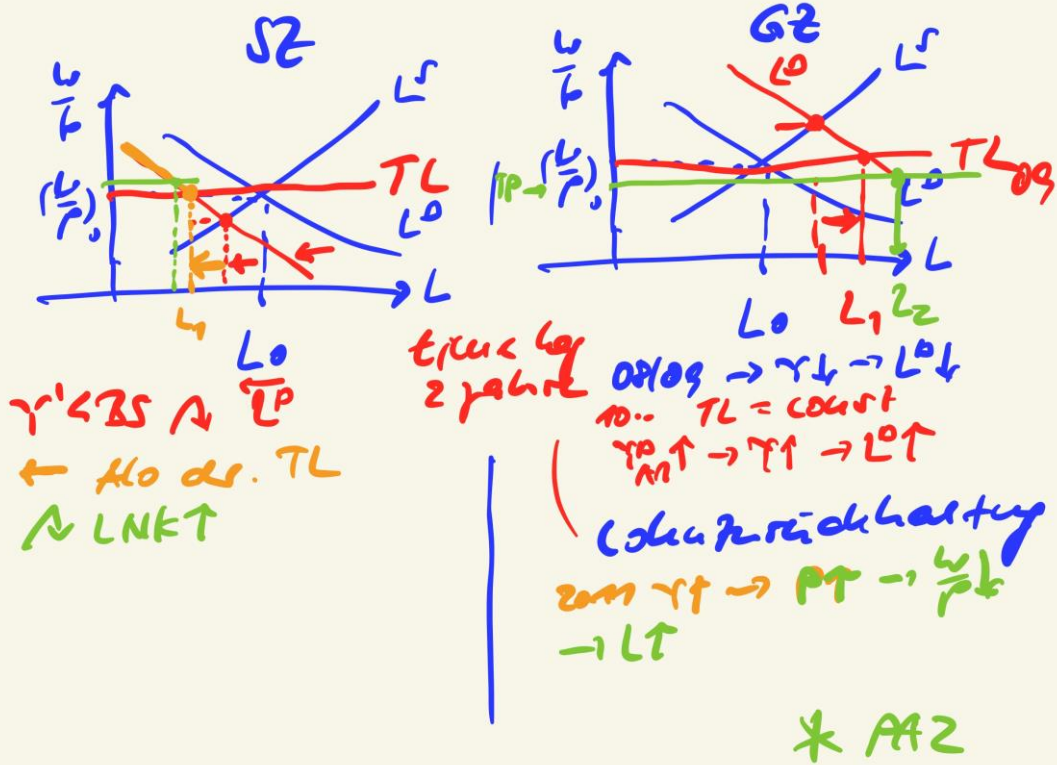 SZ
w/p
L^S
(w/p)₀
TL
L^D
L
L₁
L₀
Y' < BS
← Alo ds. TL
LNK↑
GZ
w/p
L^D
L^S
TP →
(w/p)₀
TL 09
L^D
L
L₀
L₁
L₂
2 Jahre
08/09 → Y↓ → L^D↓
10.. TL = const
→ Y↑ → L^D↑
Lohnzurückhaltung
Y↑ → P↑ → w/p↓
→ L↑
* AAZ